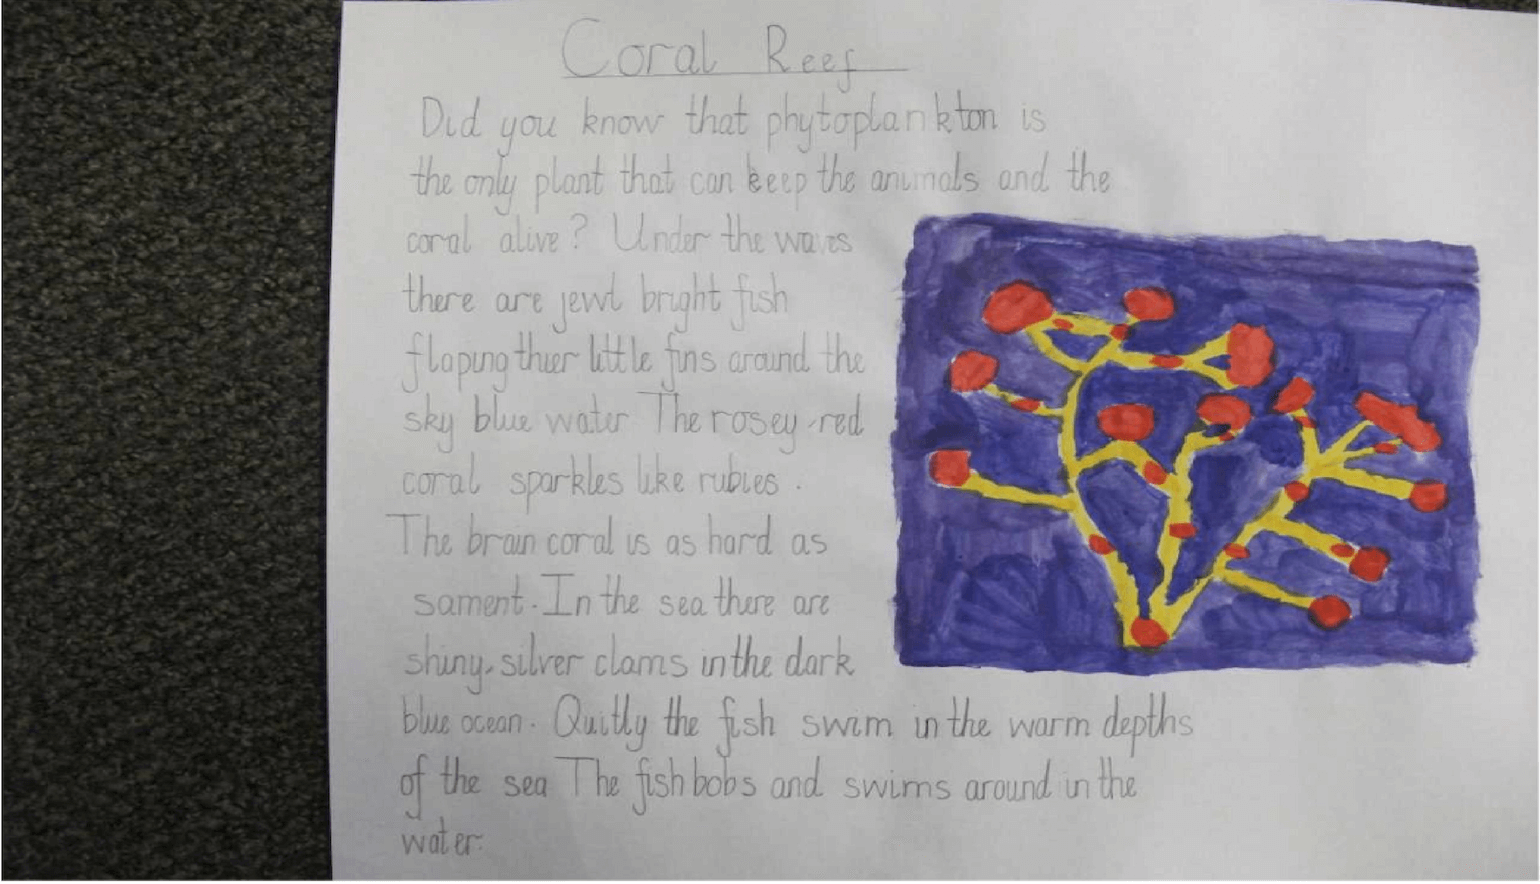 Coral Reef
Did you know that phytoplankton is
the only plant that can keep the animals and the
coral alive? Under the waves
there are jewl bright fish
flaping thier little fins around the
sky blue water The rosey red
coral sparkles like rubies.
The brain coral is as hard as
sament. In the sea there are
shiny, silver clams in the dark
blue ocean. Quitly the fish swim in the warm depths
of the sea The fish bobs and swims around in the
water.